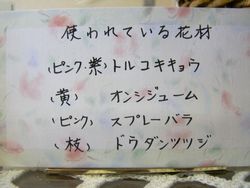 使われている花材
(ピンク・紫) トルコキキョウ
(黄) オンシジューム
(ピンク) スプレーバラ
(枝) ドウダンツツジ